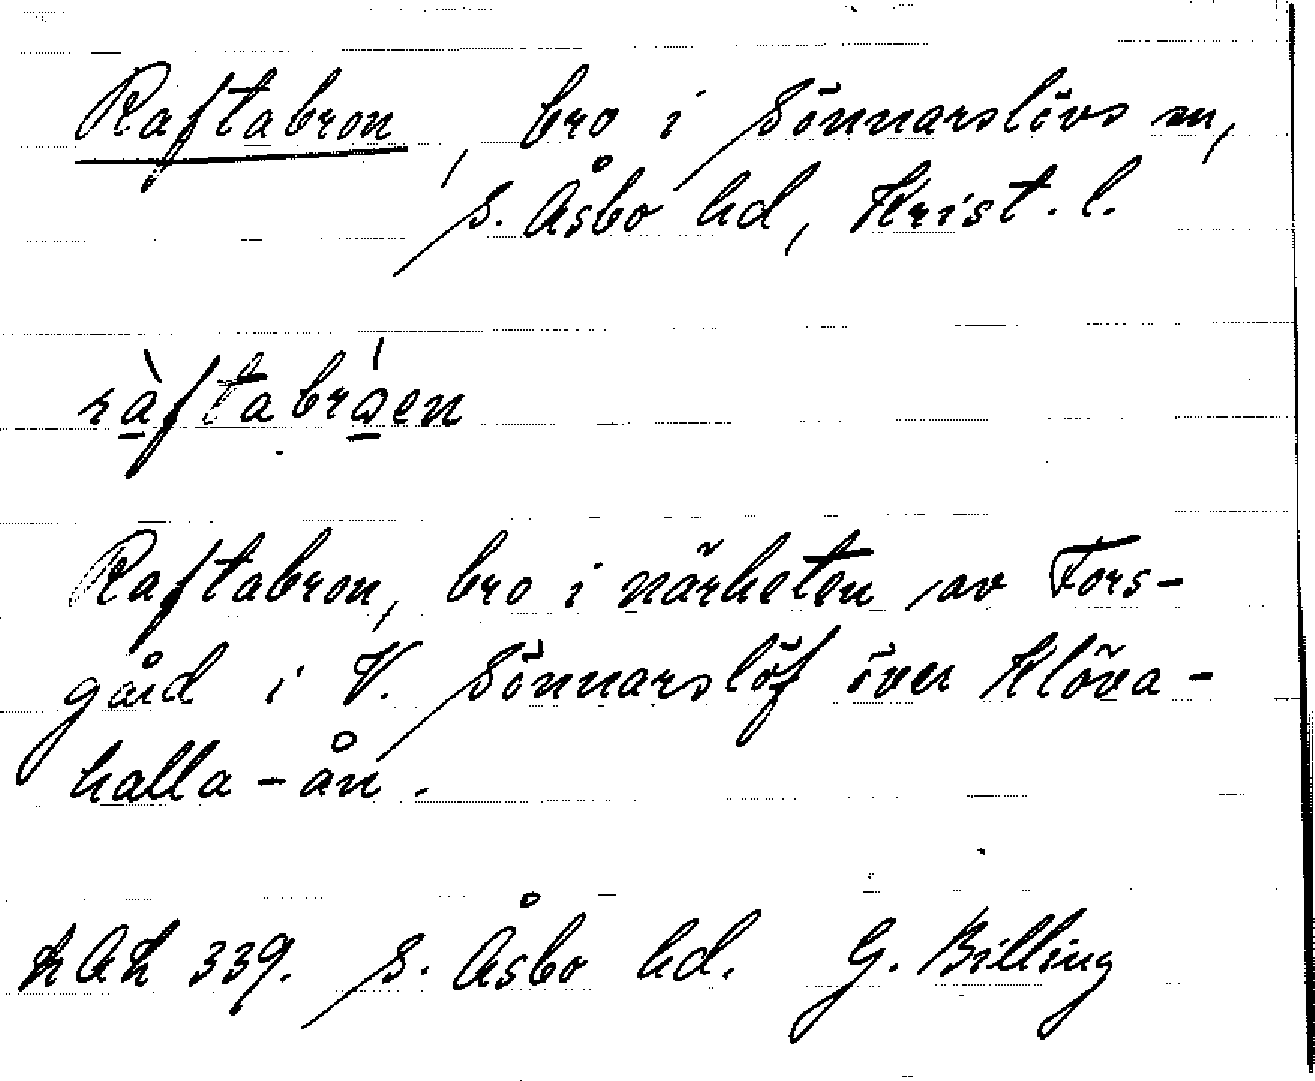 Raftabron, bro i Sönnarslövs sn,
S. Åsbo hd, Krist. l.
ràftabróen
Raftabron, bro i närheten av Fors-
gård i V. Sönnarslöf över Klöva-
halla-ån.
339. S. Åsbo hd. G. Billing